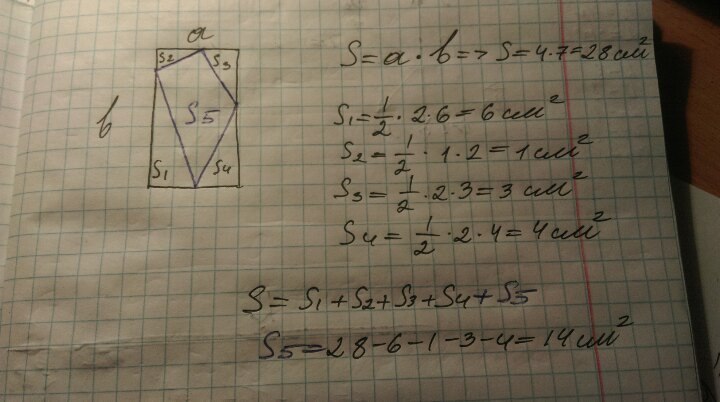 a
S2 S3
b
S5
S1 S4
S = a · b => S = 4·7 = 28 см²
S₁ = 1/2 · 2·6 = 6 см²
S₂ = 1/2 · 1·2 = 1 см²
S₃ = 1/2 · 2·3 = 3 см²
S₄ = 1/2 · 2·4 = 4 см²
S = S₁ + S₂ + S₃ + S₄ + S5
S5 = 28 - 6 - 1 - 3 - 4 = 14 см²